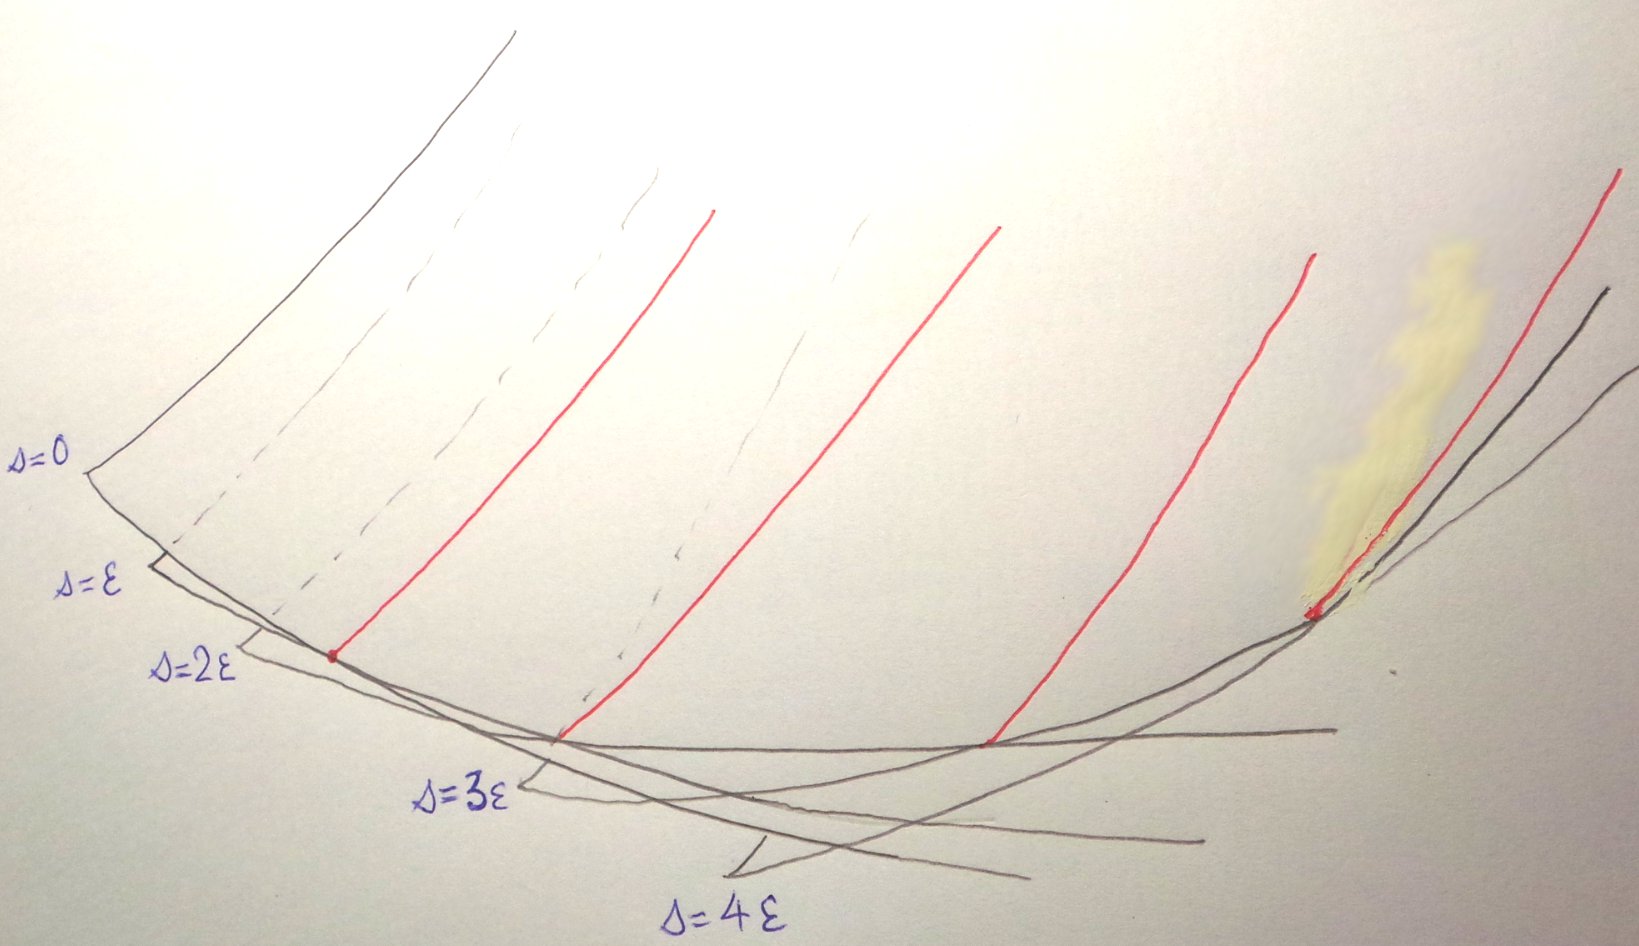 s=0
s=ε
s=2ε
s=3ε
s=4ε